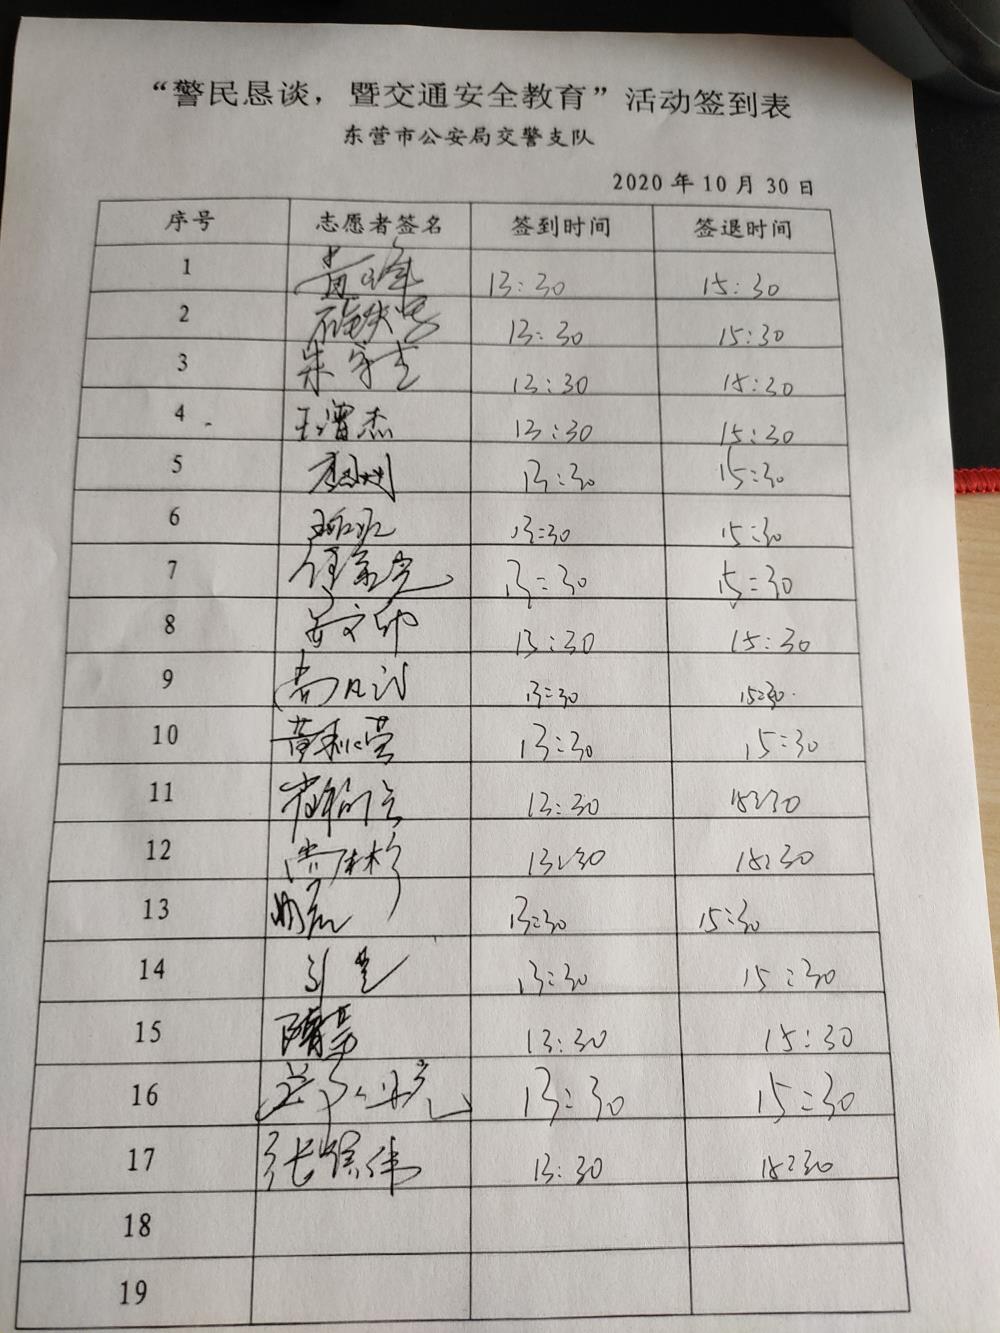 “警民恳谈，暨交通安全教育”活动签到表
东营市公安局交警支队
2020 年 10 月 30 日
序号 志愿者签名 签到时间 签退时间
1 黄峰 13:30 15:30
2 13:30 15:30
3 朱守 13:30 15:30
4 王增杰 13:30 15:30
5 13:30 15:30
6 13:30 15:30
7 13:30 15:30
8 文 13:30 15:30
9 13:30 15:30
10 黄利营 13:30 15:30
11 13:30 15:30
12 13:30 15:30
13 13:30 15:30
14 13:30 15:30
15 隋 13:30 15:30
16 13:30 15:30
17 张保伟 13:30 15:30
18
19